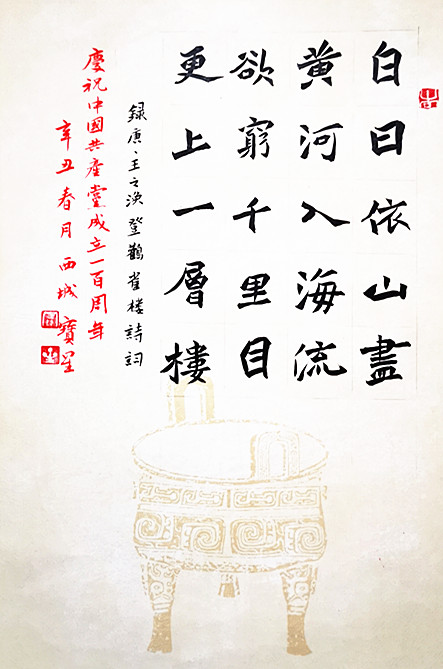 白日依山盡
黄河入海流
欲窮千里目
更上一層樓
録唐、王之渙登鸛雀楼詩詞
慶祝中國共産黨成立一百周年
辛丑春月西城寶星